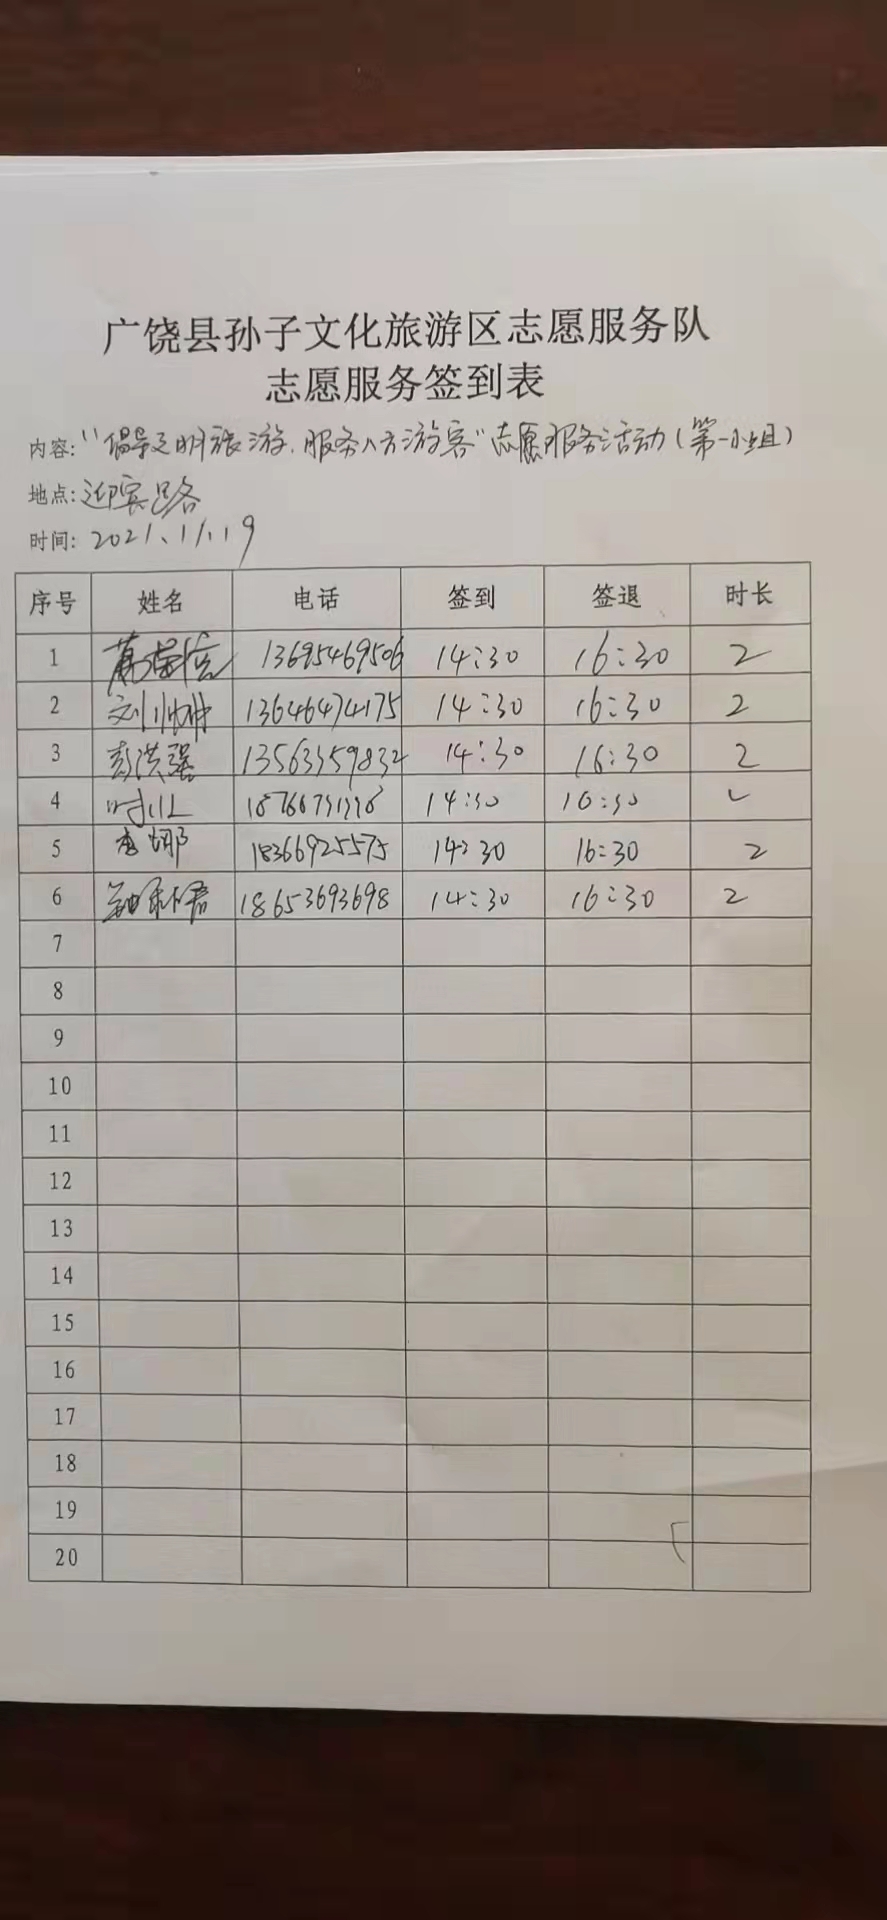 广饶县孙子文化旅游区志愿服务队
志愿服务签到表
内容:"倡导文明旅游.服务八方游客"志愿服务活动(第一小组)
地点:迎宾路
时间:2021.11.19
序号 姓名 电话 签到 签退 时长
1 13695469506 14:30 16:30 2
2 刘帅帅 13646474175 14:30 16:30 2
3 彭洪强 13563359832 14:30 16:30 2
4 14:30 16:30 2
5 李娜 18366925575 14:30 16:30 2
6 18653693698 14:30 16:30 2
7
8
9
10
11
12
13
14
15
16
17
18
19
20